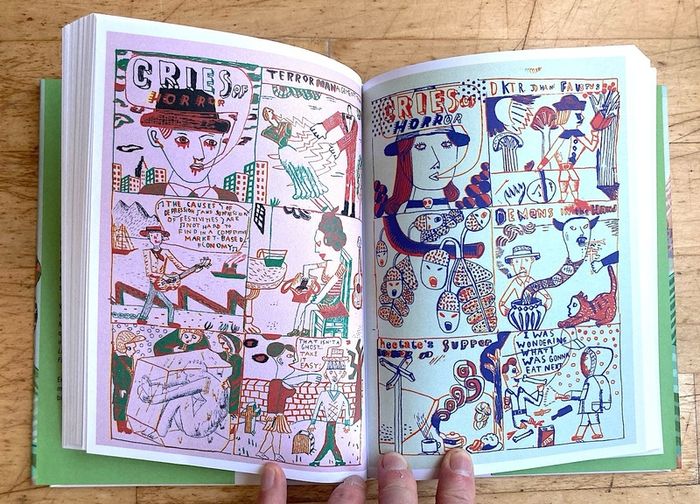 CRIES OF
HORROR
TERROR MAN
THE CAUSES OF
DEPRESSION AND SUPPRESSION
OF FESTIVITIES ARE
NOT HARD TO
FIND IN A COMPETITIVE
MARKET-BASED
ECONOMY
THAT ISN'T A
GHOST.
TAKE
IT
EASY.
CRIES OF
HORROR
DKTR JOHAN FAUSTUS
DEMONS
hecate's SUPPER
I WAS
WONDERING
WHAT I
WAS GONNA
EAT NEXT